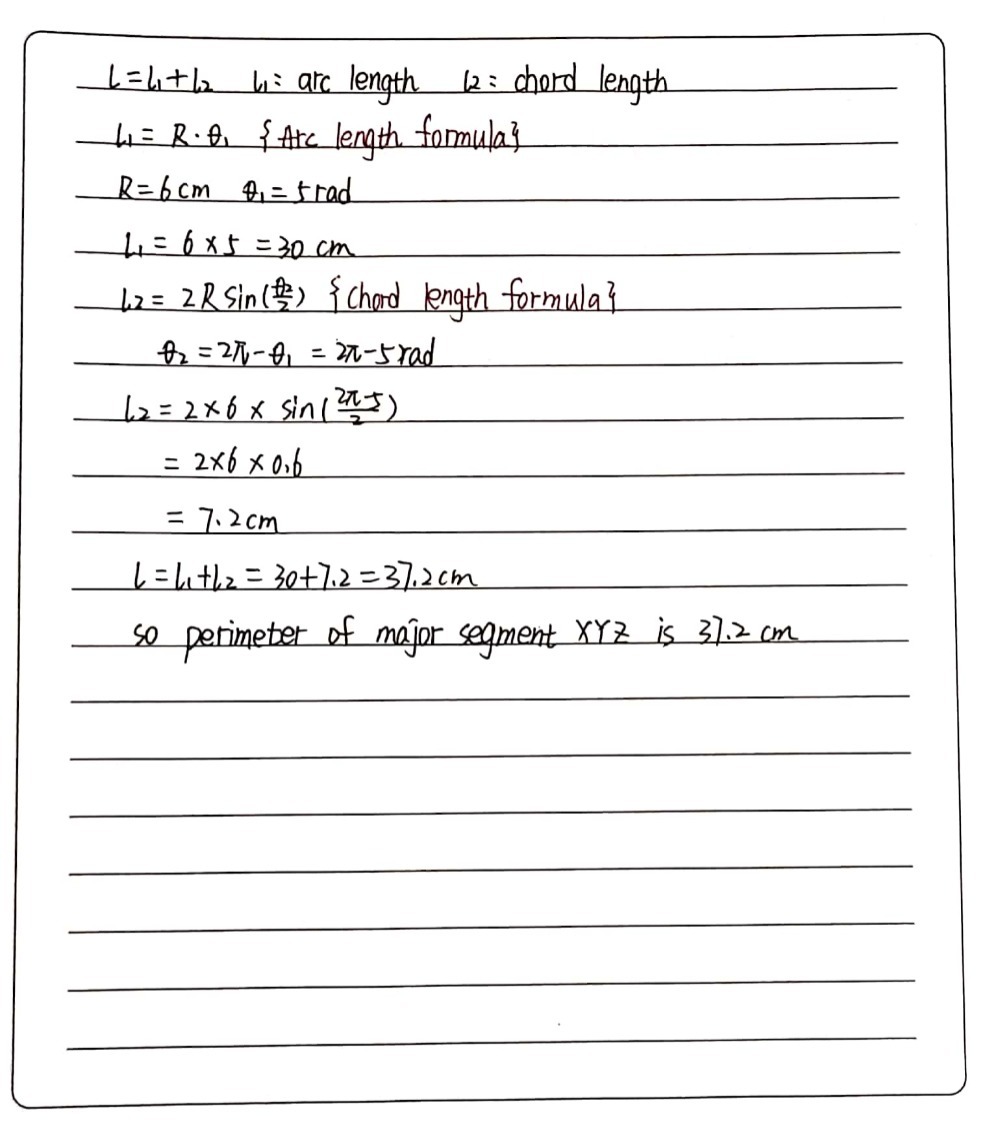 L=L₁+L₂ L₁: arc length L2: chord length
L₁= R·θ₁ {Arc length formula}
R=6cm θ₁=5rad
L₁= 6×5 =30 cm
L2= 2R sin(θ₂/2) {Chord length formula}
θ₂ =2π-θ₁ = 2π-5rad
L2 = 2×6 × sin(2π-5/2)
= 2×6 ×0.6
= 7.2cm
L=L₁+L₂ = 30+7.2=37.2cm
so perimeter of major segment XYZ is 37.2 cm